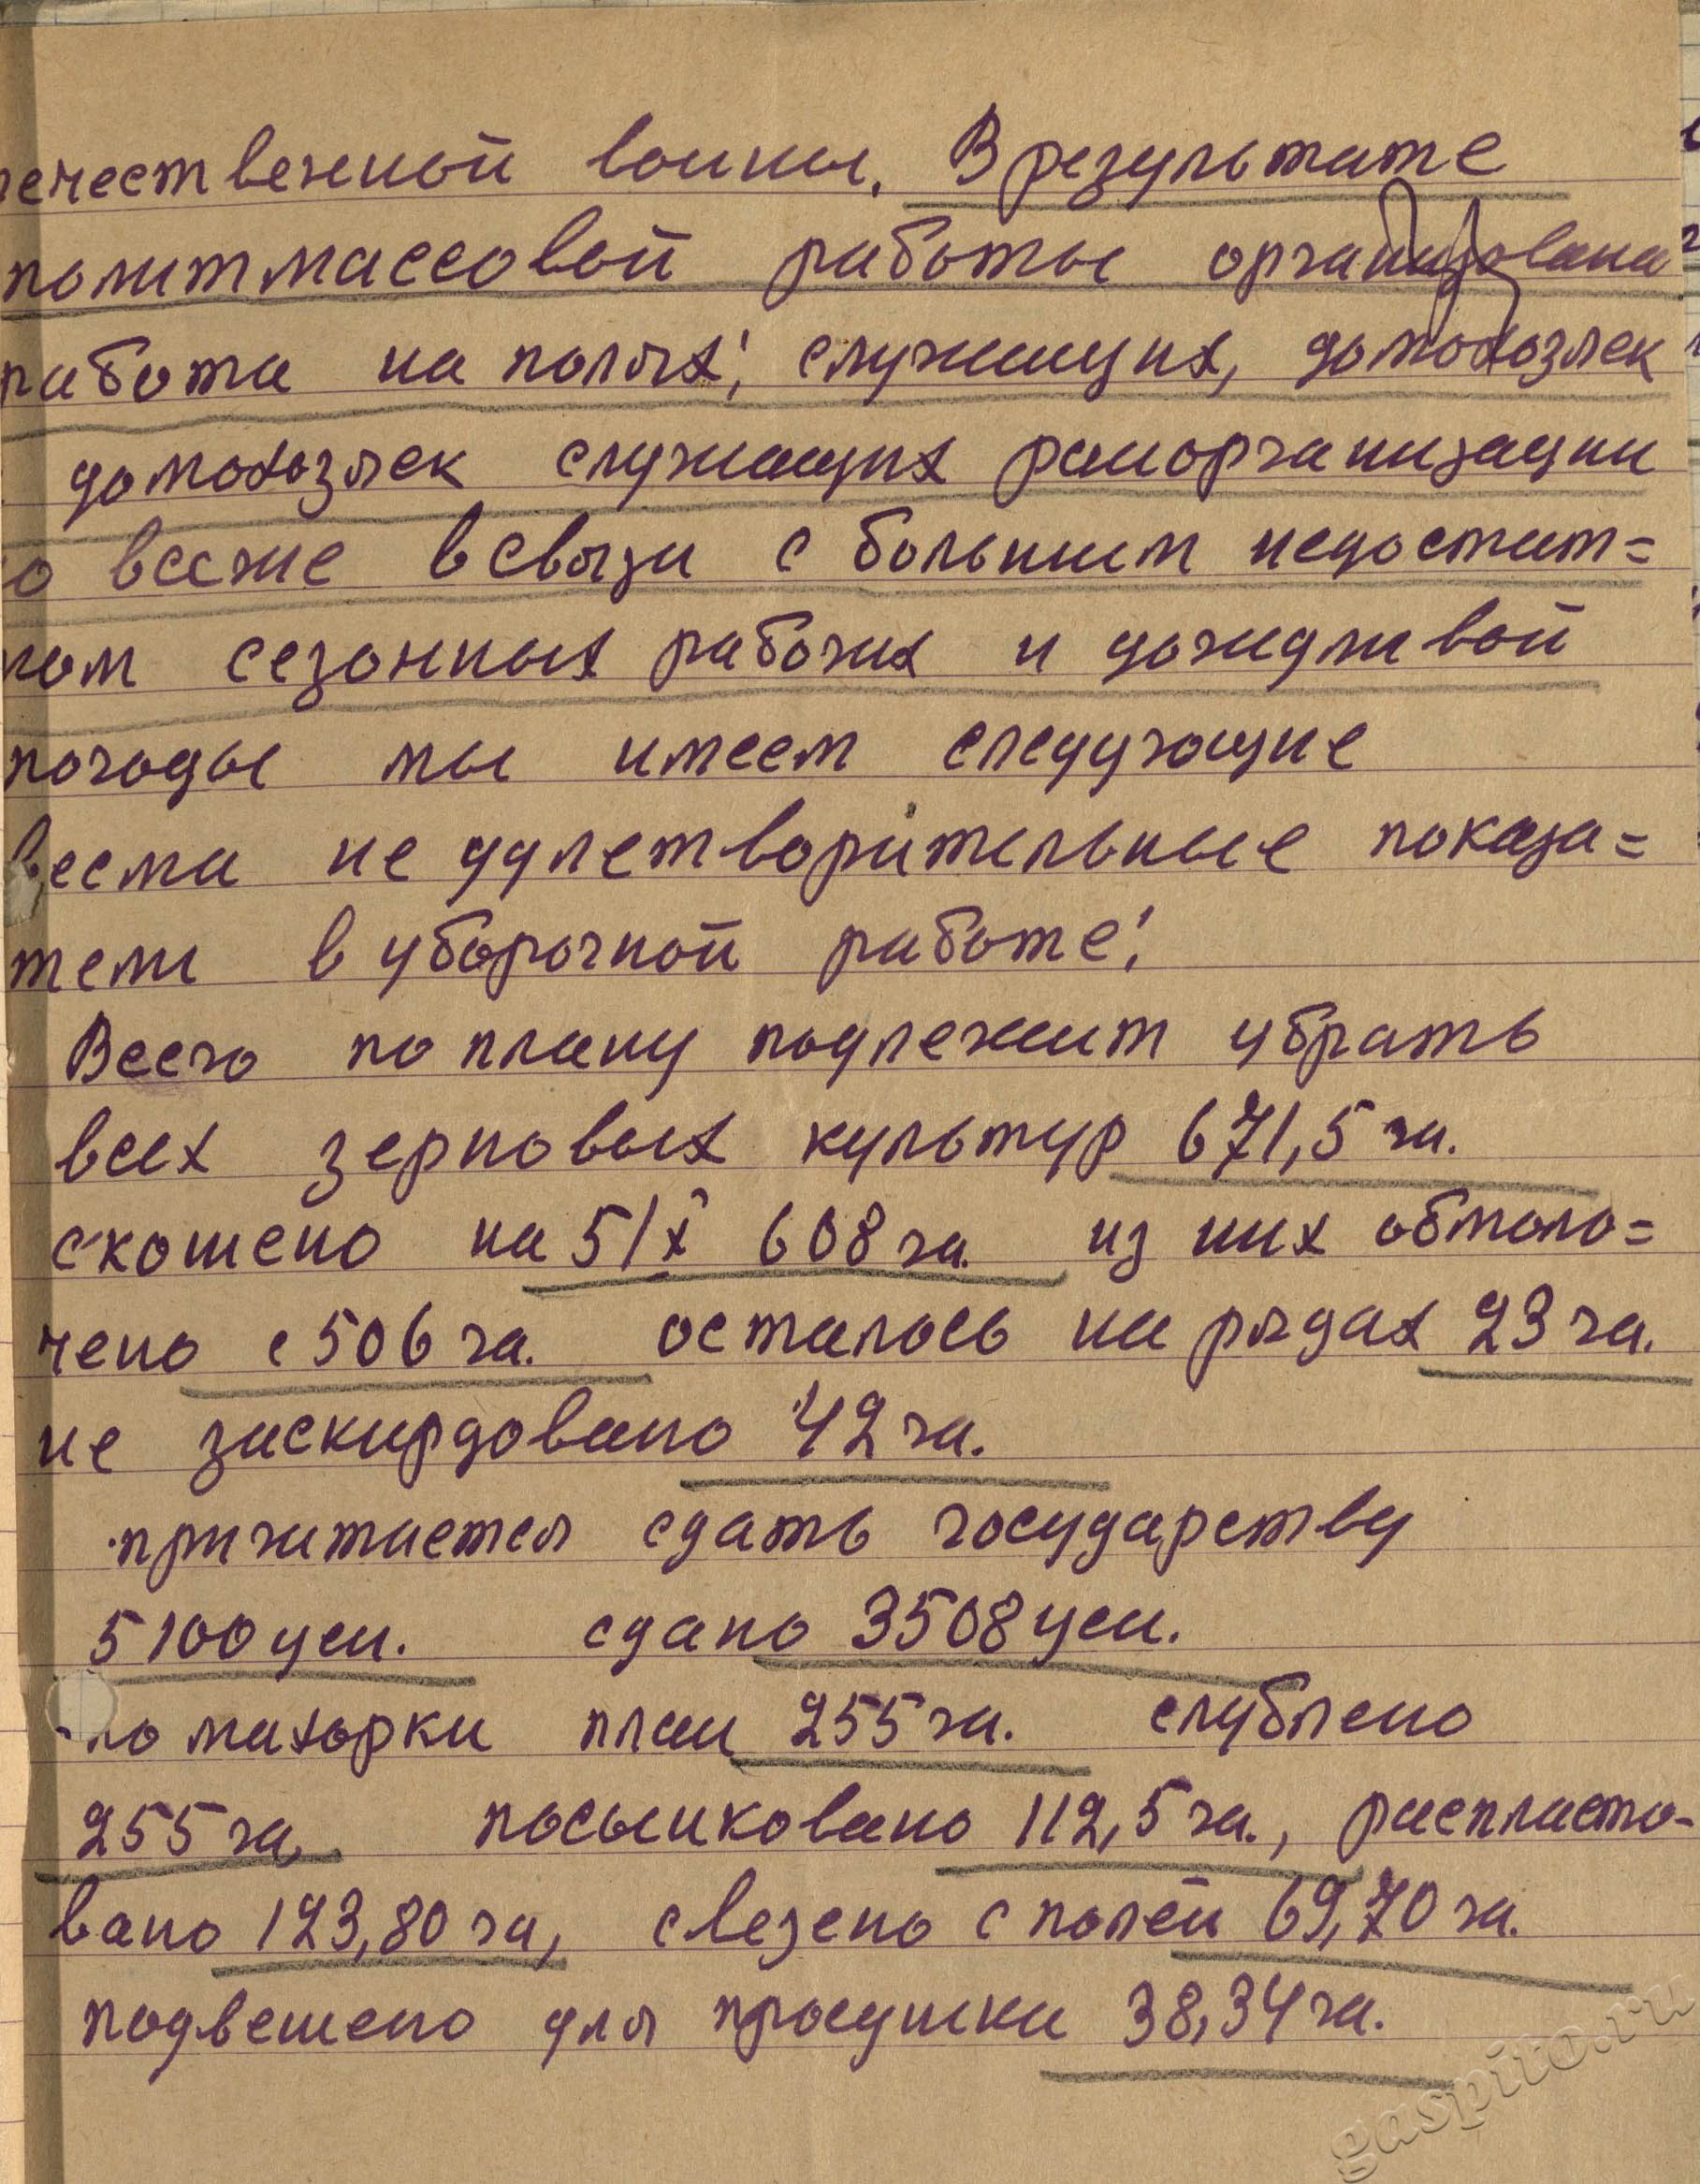 чественной воины. В результате
политмассовой работы организована
работа на полях; служищих, домохозяек
домохозяек служащих райорганизации
о всеже в свызи с большим недостат=
ком сезонных рабочих и дождливой
погоды мы имеем следующие
весма не удлетворительные показа=
тели в уборочной работе:
Всего по плану подлежит убрать
всех зерновых культур 671,5 га.
скошено на 5/X 608 га. из них обмоло=
чено с 506 га. осталось на рядах 23 га.
не заскирдовано 42 га.
причитается сдать государству
5100 цен. сдано 3508 цен.
по махорки план 255 га. слублено
255 га посынковано 112,5 га., распласто-
вано 123,80 га, свезено с полей 69,70 га.
подвешено для просушки 38,34 га.
gaspito.ru